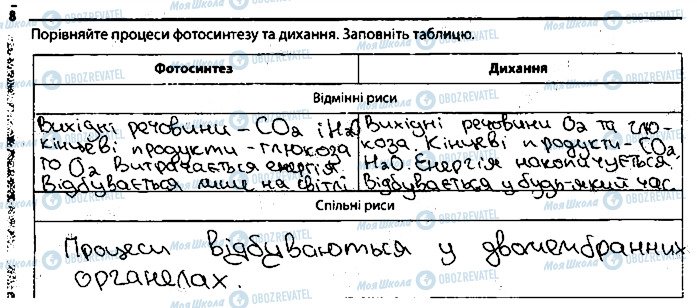 8
Порівняйте процеси фотосинтезу та дихання. Заповніть таблицю.
Фотосинтез Дихання
Відмінні риси
Вихідні речовини - CO2 і H2O
кінцеві продукти - глюкоза
то O2. Витрачається енергія
Відбувається лише на світлі
Вихідні речовини O2 та глю-
коза. Кінцеві продукти - CO2
H2O. Енергія накопичується.
Відбувається у будь-який час.
Спільні риси
Процеси відбуваються у двомембранних
органелах.